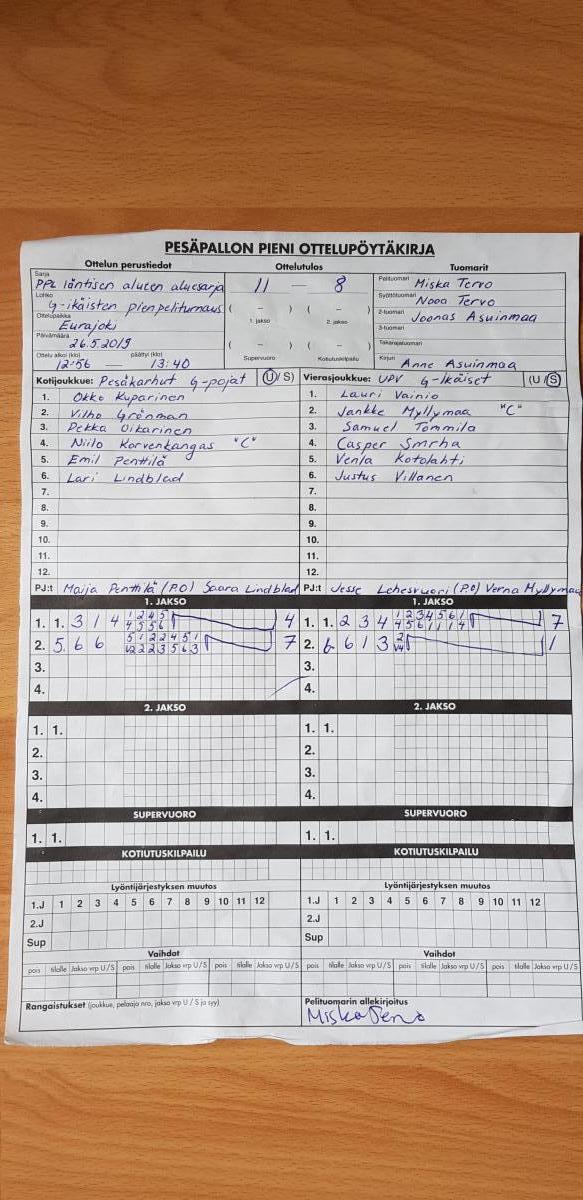 PESÄPALLON PIENI OTTELUPÖYTÄKIRJA
Ottelun perustiedot Ottelutulos Tuomarit
Sarja
PPL läntisen alueen aluesarja
Lohko
G-ikäisten pienpeliturnaus
Ottelupaikka
Eurajoki
Päivämäärä
26.5.2019
Ottelu alkoi (klo) päättyi (klo)
12:56 — 13:40
11 — 8
( – ) ( – )
1. jakso 2. jakso
( – ) ( – )
Supervuoro Kotiutuskilpailu
Pelituomari Miska Tervo
Syöttötuomari Nooa Tervo
2-tuomari Joonas Asuinmaa
3-tuomari
Takarajatuomari
Kirjuri Anne Asuinmaa
Kotijoukkue: Pesäkarhut G-pojat (U/S)
1. Okko Kuparinen
2. Vilho Grönman
3. Pekka Oikarinen
4. Niilo Korvenkangas "C"
5. Emil Penttilä
6. Lari Lindblad
7.
8.
9.
10.
11.
12.
PJ:t Maija Penttilä (P.O) Saara Lindblad
Vierasjoukkue: UPV G-Ikäiset (U/S)
1. Lauri Vainio
2. Jankke Myllymaa "C"
3. Samuel Tommila
4. Casper Smrha
5. Venla Kotolahti
6. Justus Villanen
7.
8.
9.
10.
11.
12.
PJ:t Jesse Lehesvuori (P.O) Verna Myllymaa
1. JAKSO 1. JAKSO
1. 1. 3 1 4 1 2 4 5 4
4 5 5 6
2. 5. 6 6 5 1 2 2 4 5 1 7
V2 2 2 3 5 6 3
3.
4.
1. 1. 2 3 4 1 2 3 4 5 6 1 7
4 5 6 1 1 1 4
2. 6. 6 1 3 2 1
V4
3.
4.
2. JAKSO 2. JAKSO
1. 1. 1. 1.
2. 2.
3. 3.
4. 4.
SUPERVUORO SUPERVUORO
1. 1. 1. 1.
KOTIUTUSKILPAILU KOTIUTUSKILPAILU
Lyöntijärjestyksen muutos Lyöntijärjestyksen muutos
1.J 1 2 3 4 5 6 7 8 9 10 11 12 1.J 1 2 3 4 5 6 7 8 9 10 11 12
2.J 2.J
Sup Sup
Vaihdot Vaihdot
pois tilalle Jakso vrp U/S pois tilalle Jakso vrp U/S pois tilalle Jakso vrp U/S pois tilalle Jakso vrp U/S pois tilalle Jakso vrp U/S pois tilalle Jakso vrp U/S
Rangaistukset (joukkue, pelaaja nro, jakso vrp U / S ja syy) Pelituomarin allekirjoitus
Miska Tervo